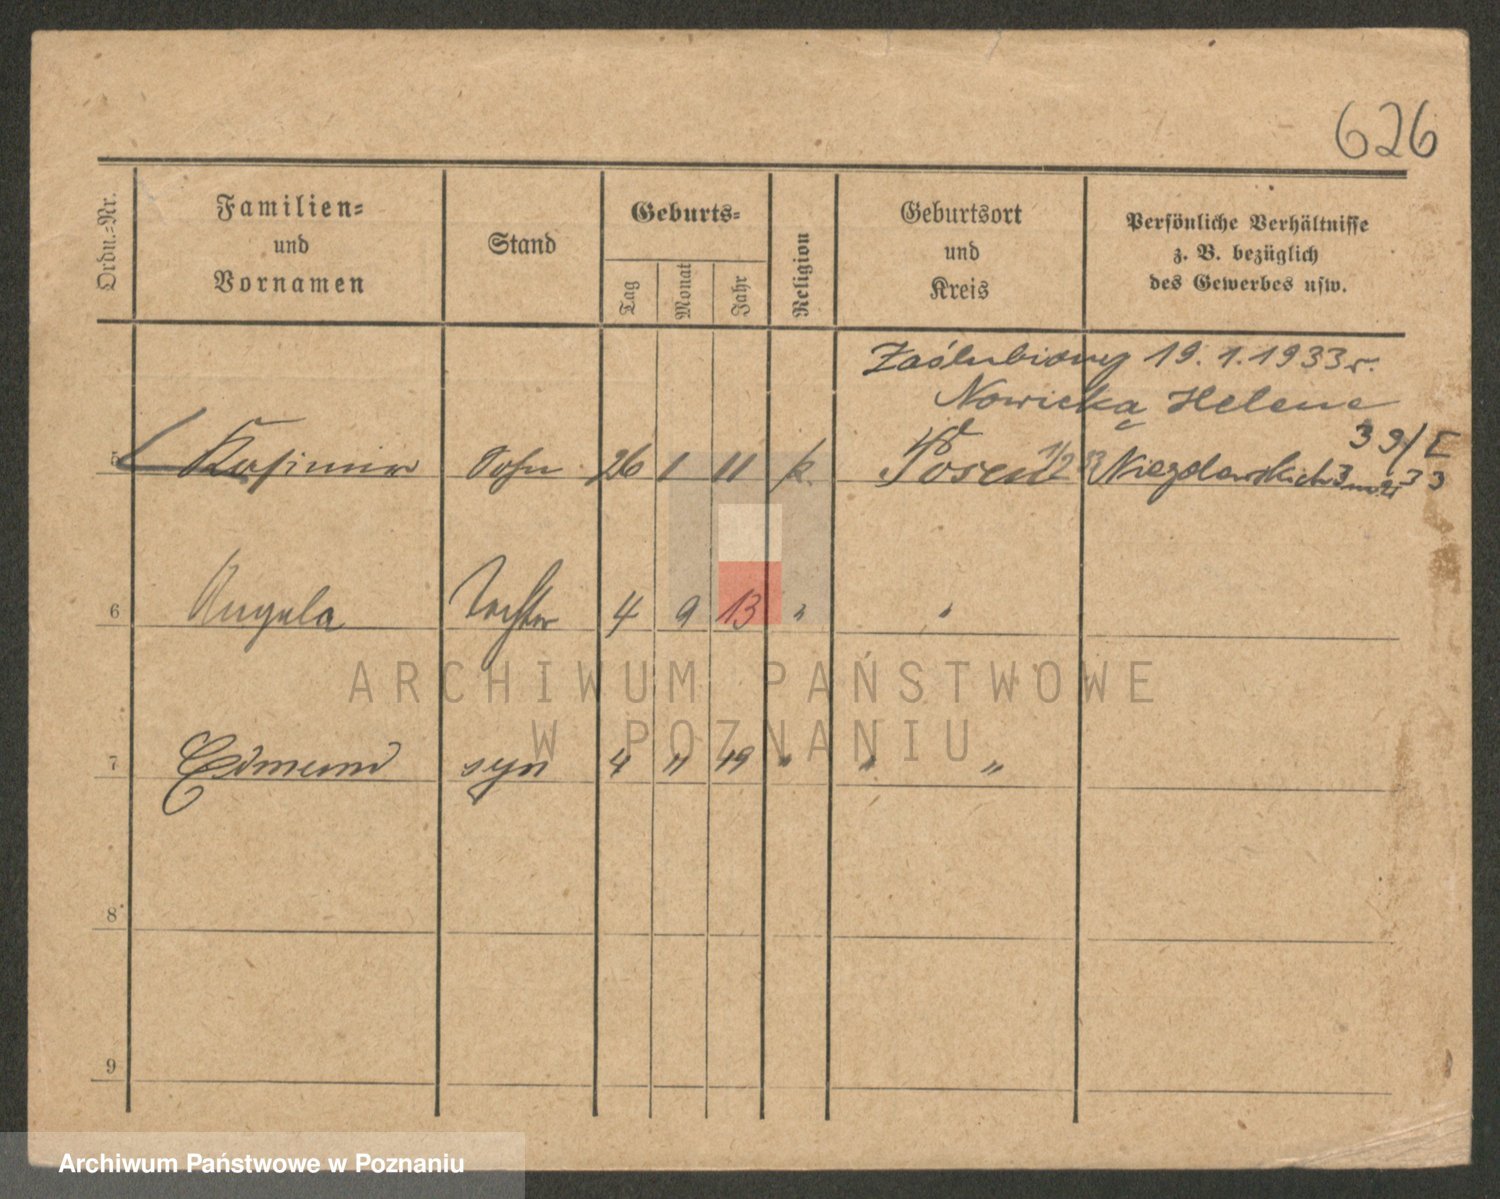 626
Ordn.=Nr.
Familien=
und
Vornamen
Stand
Geburts=
Tag
Monat
Jahr
Religion
Geburtsort
und
Kreis
Persönliche Verhältnisse
z. B. bezüglich
des Gewerbes usw.
Zaślubiony 19.1.1933 r.
Nowicką Helenę
39/E
5 Kasimir Sohn 26 1 11 k. Posen 1/2 33
6 Angela Tochter 4 9 13 " "
7 Edmund syn 4 " 19 " " "
8
9
ARCHIWUM PAŃSTWOWE
W POZNANIU
Archiwum Państwowe w Poznaniu